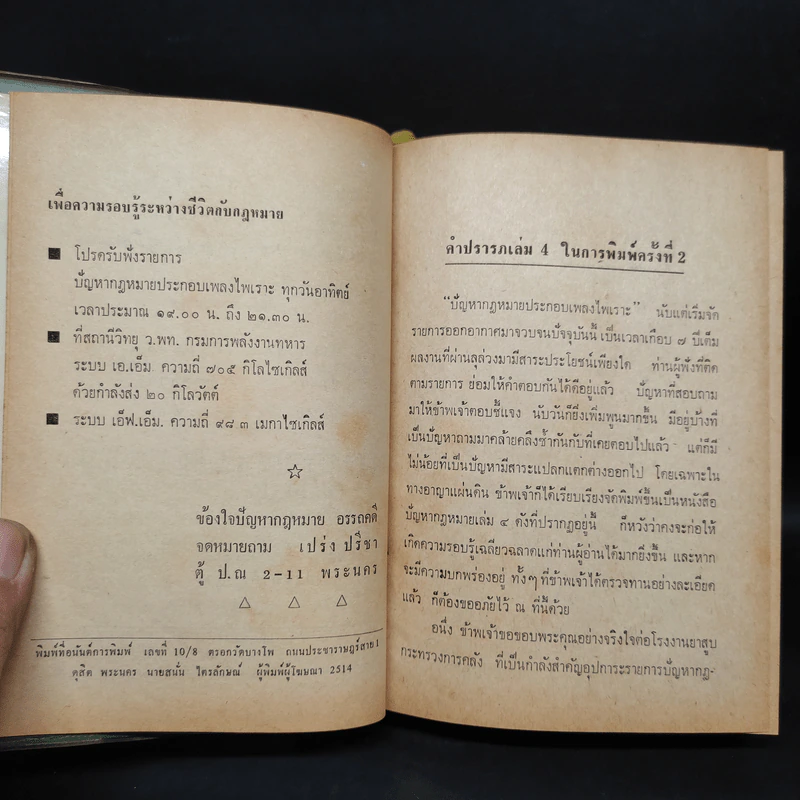 เพื่อความรอบรู้ระหว่างชีวิตกับกฎหมาย
■ โปรดรับฟังรายการ
ปัญหากฎหมายประกอบเพลงไพเราะ ทุกวันอาทิตย์
เวลาประมาณ ๑๙.๐๐ น. ถึง ๒๑.๓๐ น.
■ ที่สถานีวิทยุ ว.พท. กรมการพลังงานทหาร
ระบบ เอ.เอ็ม. ความถี่ ๗๐๕ กิโลไซเกิลส์
ด้วยกำลังส่ง ๒๐ กิโลวัตต์
■ ระบบ เอ็ฟ.เอ็ม. ความถี่ ๙๘ ๓ เมกาไซเกิลส์
☆
ข้องใจปัญหากฎหมาย อรรถคดี
จดหมายถาม เปร่ง ปรีชา
ตู้ ป.ณ 2-11 พระนคร
△ △ △
พิมพ์ที่อนันต์การพิมพ์ เลขที่ 10/8 ตรอกวัดบางโพ ถนนประชาราษฎร์สาย 1
ดุสิต พระนคร นายสนั่น ไตรลักษณ์ ผู้พิมพ์ผู้โฆษณา 2514
คำปรารภเล่ม 4 ในการพิมพ์ครั้งที่ 2
“ปัญหากฎหมายประกอบเพลงไพเราะ” นับแต่เริ่มจัด
รายการออกอากาศมาจวบจนปัจจุบันนี้ เป็นเวลาเกือบ ๗ ปีเต็ม
ผลงานที่ผ่านลุล่วงมามีสาระประโยชน์เพียงใด ท่านผู้ฟังที่ติด
ตามรายการ ย่อมให้คำตอบกันได้ดีอยู่แล้ว ปัญหาที่สอบถาม
มาให้ข้าพเจ้าตอบชี้แจง นับวันก็ยิ่งเพิ่มพูนมากขึ้น มีอยู่บ้างที่
เป็นปัญหาถามมาคล้ายคลึงซ้ำกันกับที่เคยตอบไปแล้ว แต่ก็มี
ไม่น้อยที่เป็นปัญหามีสาระแปลกแตกต่างออกไป โดยเฉพาะใน
ทางอาญาแผ่นดิน ข้าพเจ้าก็ได้เรียบเรียงจัดพิมพ์ขึ้นเป็นหนังสือ
ปัญหากฎหมายเล่ม ๔ ดังที่ปรากฏอยู่นี้ ก็หวังว่าคงจะก่อให้
เกิดความรอบรู้เฉลียวฉลาดแก่ท่านผู้อ่านได้มากยิ่งขึ้น และหาก
จะมีความบกพร่องอยู่ ทั้งๆ ที่ข้าพเจ้าได้ตรวจทานอย่างละเอียด
แล้ว ก็ต้องขออภัยไว้ ณ ที่นี้ด้วย
อนึ่ง ข้าพเจ้าขอขอบพระคุณอย่างจริงใจต่อโรงงานยาสูบ
กระทรวงการคลัง ที่เป็นกำลังสำคัญอุปการะรายการปัญหากฎ-